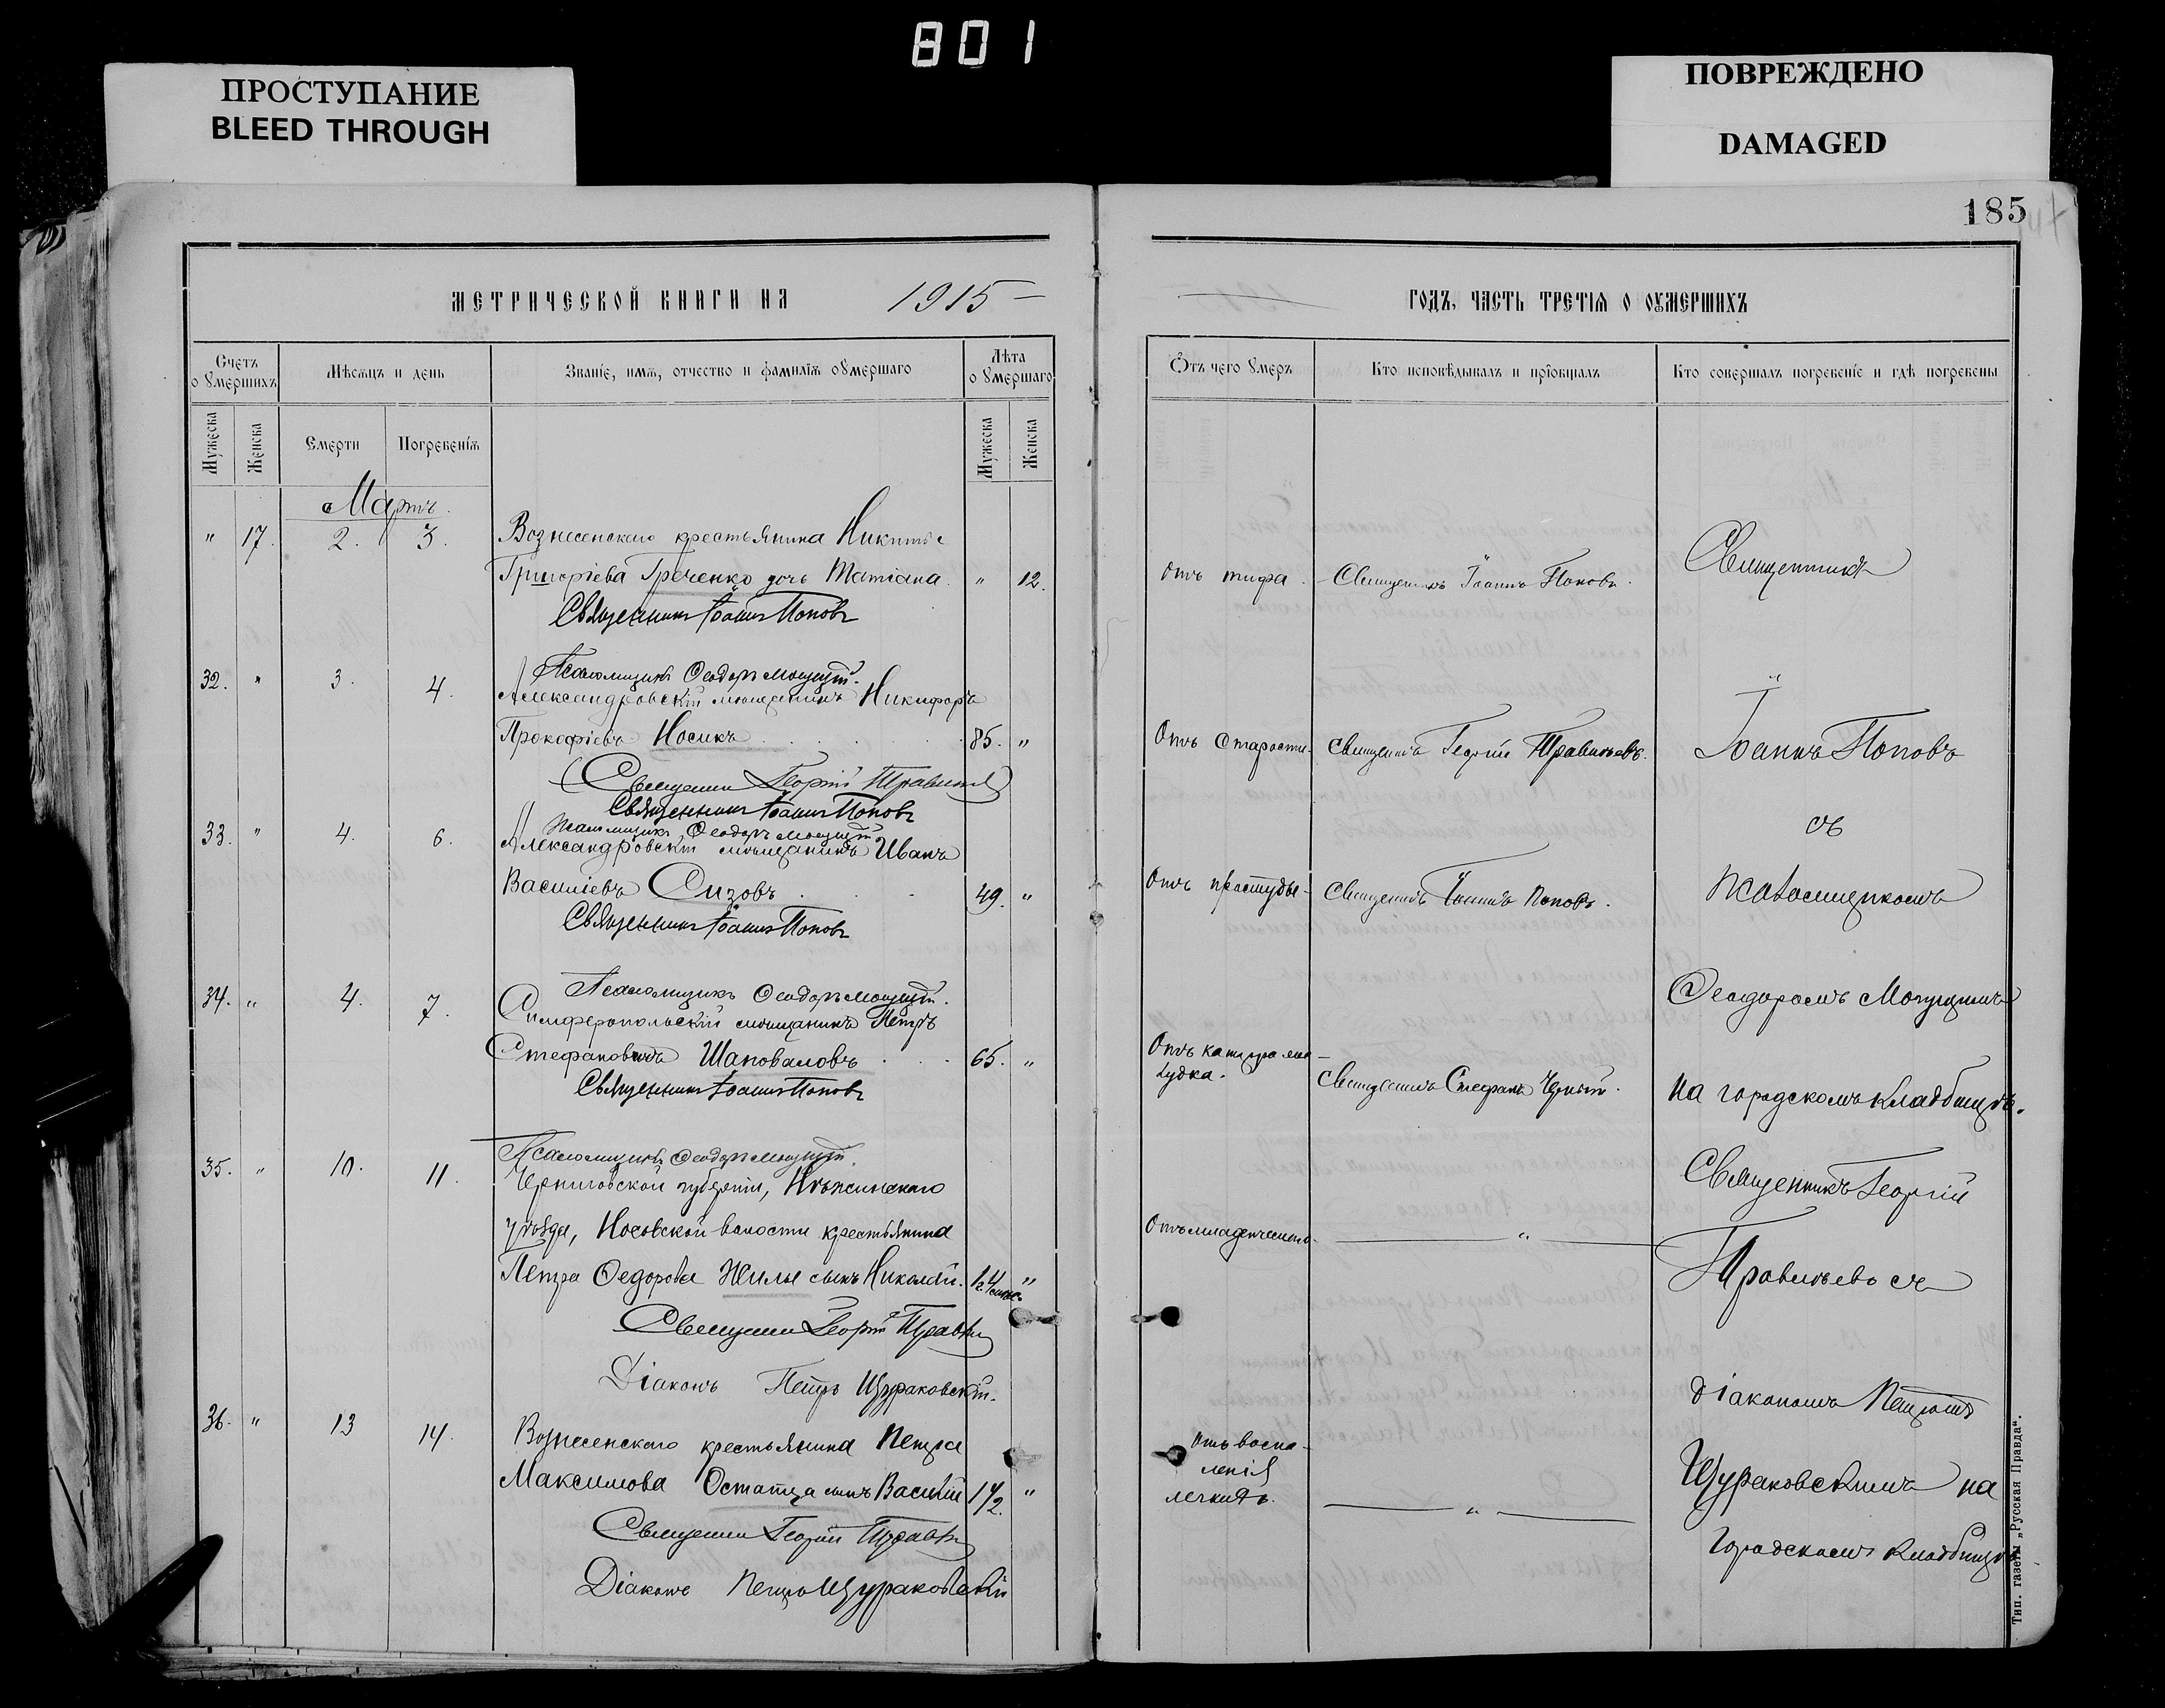 801
ПРОСТУПАНИЕ
BLEED THROUGH
ПОВРЕЖДЕНО
DAMAGED
185
МЕТРИЧЕСКОЙ КНИГИ НА 1915
ГОДЪ, ЧАСТЬ ТРЕТІЯ О ОУМЕРШИХЪ
Счетъ о Умершихъ
Мѣсяцъ и день
Званіе, имя, отчество и фамилія оумершаго
Лѣта о Умершаго
Отъ чего Умеръ
Кто исповѣдывалъ и пріобщалъ
Кто совершалъ погребеніе и гдѣ погребены
Мужеска
Женска
Смерти
Погребенія
Мужеска
Женска
Мартъ
" 17. 2. 3. Вознесенскаго крестьянина Никиты
Григоріева Греченко дочь Татіана. " 12. отъ тифа. Священникъ Іоаннъ Поповъ. Священникъ
Священникъ Іоаннъ Поповъ
Псаломщикъ Ѳеодоръ
32. " 3. 4. Александровскій мѣщанинъ Никифоръ
Прокофіевъ Носикъ 85. " Отъ старости. Священникъ Георгій Іоаннъ Поповъ
Священникъ Георгій
Священникъ Іоаннъ Поповъ
съ
Псаломщикъ Ѳеодоръ
33. " 4. 6. Александровскій мѣщанинъ Иванъ
Василіевъ Сизовъ 49. " Отъ простуды. Священникъ Іоаннъ Поповъ. Псаломщикомъ
Священникъ Іоаннъ Поповъ
Псаломщикъ Ѳеодоръ
Ѳеодоромъ
34. " 4. 7. Симферопольскій мѣщанинъ Петръ
Стефановъ Шаповаловъ 65. " Отъ катарра же-
лудка. Священникъ Стефанъ Черный. на городскомъ кладбищѣ.
Священникъ Іоаннъ Поповъ
Псаломщикъ Ѳеодоръ
35. " 10. 11. Черниговской губерніи, Нѣжинскаго
Священникъ Георгій
уѣзда, Носовской волости крестьянина
Отъ младенческой "
Петра Ѳедорова Жилы сынъ Николай. "
съ
Священникъ Георгій
Діаконъ Петръ Щураковскій.
діакономъ Петромъ
36. " 13 14. Вознесенскаго крестьянина Петра
Отъ воспа-
ленія
легкихъ. "
Максимова Остапца сынъ Василій 1 1/2. "
Щураковскимъ на
Священникъ Георгій
городскомъ кладбищѣ
Діаконъ Петръ Щураковскій
Тип. газеты „Русская Правда“.